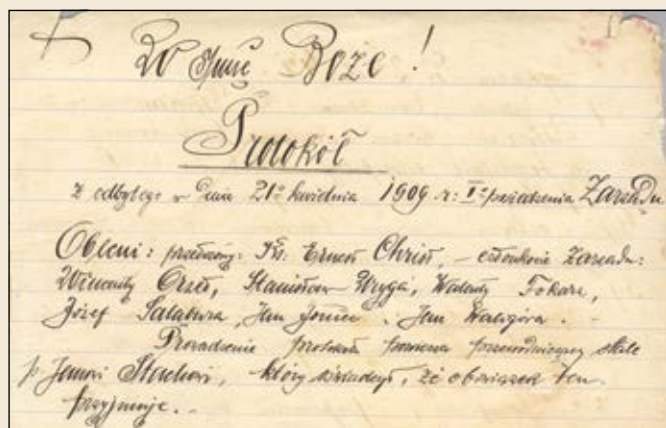 W Imię Boże!
Protokół
z odbytego w dniu 21º kwietnia 1909 r: Iº posiedzenia Zarządu
Obecni: przewodn: Ks: Ernest Christ, – członkowie Zarządu:
Wincenty Orzeł, Stanisław Wryga, Walenty Tokarz,
Józef Salabura, Jan Joniec. Jan Waligóra.
Prowadzenie protokołu powierza przewodniczący stale
p. Janowi Stachowi, który oświadczył, że obowiązek ten
przyjmuje.